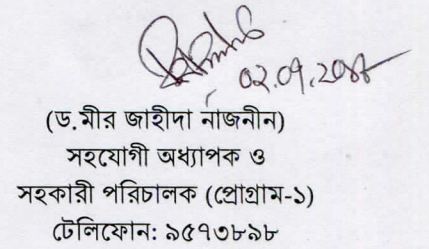 (ড.মীর জাহীদা নাজনীন)
সহযোগী অধ্যাপক ও
সহকারী পরিচালক (প্রোগ্রাম-১)
টেলিফোন: ৯৫৭৩৮৯৮